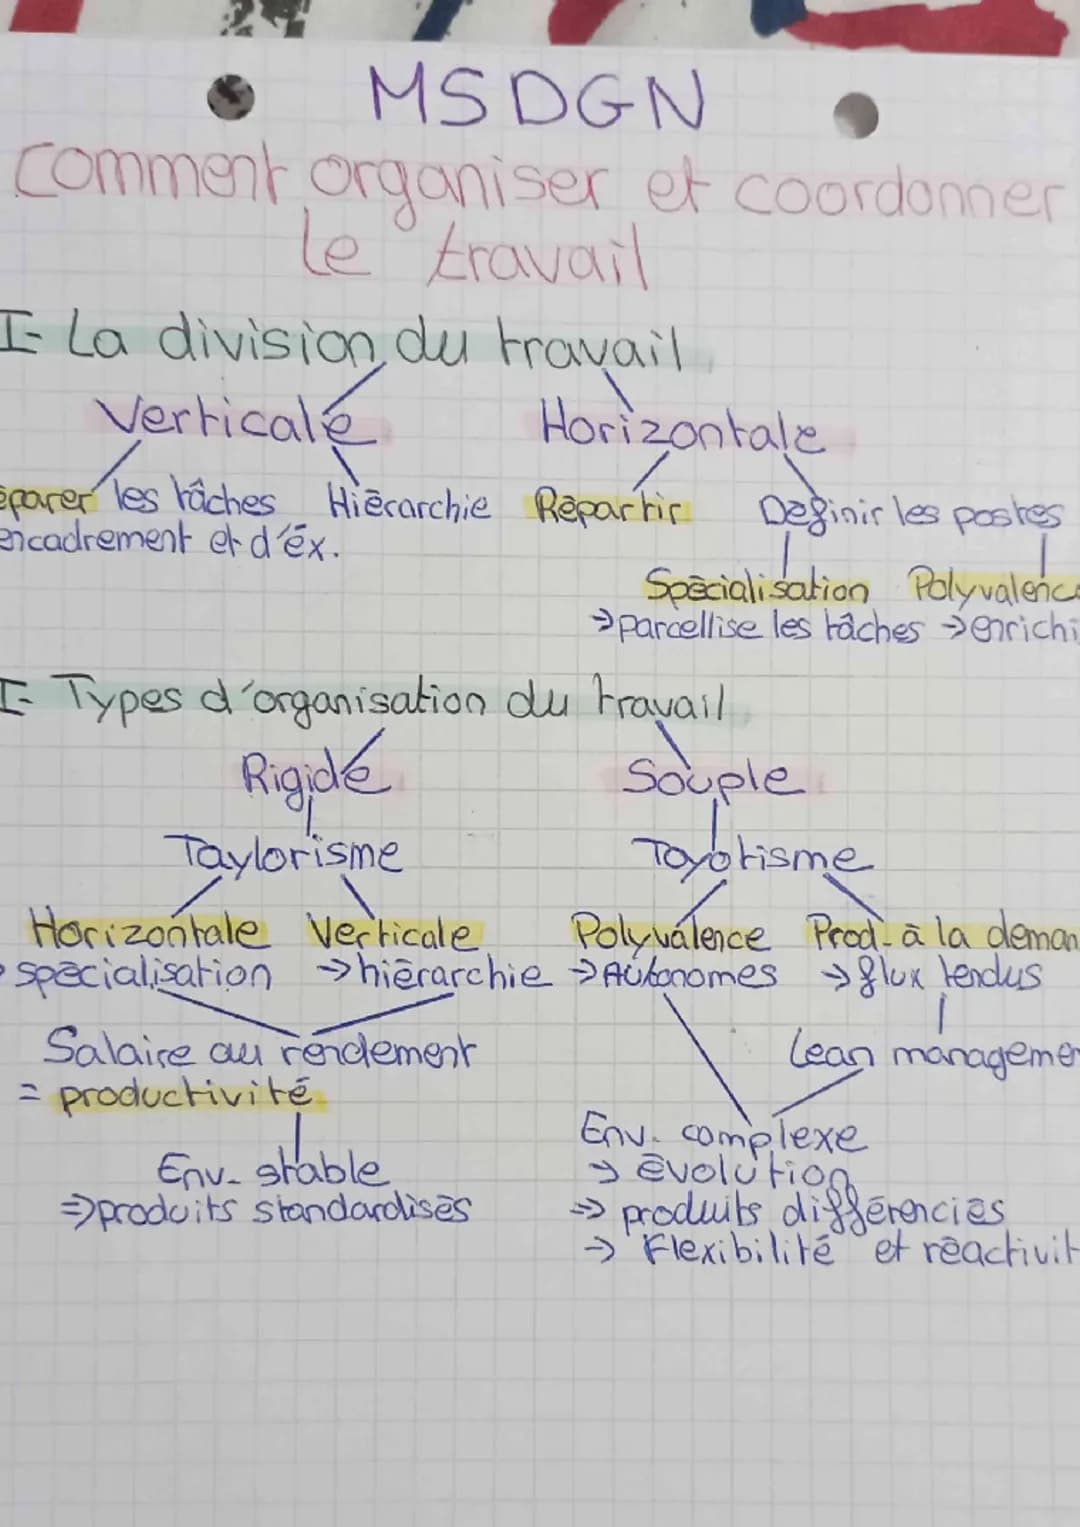 MSDGN
Comment organiser et coordonner
le travail
I- La division du travail
Verticale Horizontale
éparer les tâches Hiérarchie Répartir Définir les postes
encadrement et d'éx.
Spécialisation Polyvalenc
→ parcellise les tâches → enrichi
I- Types d'organisation du travail
Rigide Souple
Taylorisme Toyotisme
Horizontale Verticale Polyvalence Prod. à la deman
spécialisation → hiérarchie → Autonomes → flux tendus
Salaire au rendement Lean managemen
= productivité
Env. complexe
Env. stable → évolution
⇒ produits standardisés ⇒ produits différenciés
→ Flexibilité et réactivit